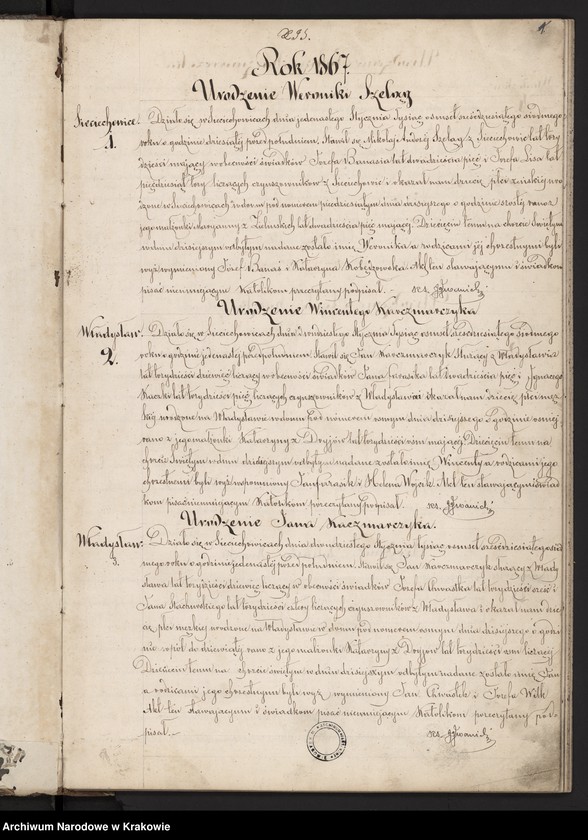 Rok 1867.
Urodzenie Weroniki Szeląg
Sieciechowice.
1.
Działo się w Sieciechowicach dnia jedenastego Stycznia Tysiąc osmset sześćdziesiątego siódmego
roku o godzinie dziesiątej przed południem. Stawił się Mikołaj Andrzej Szeląg z Sieciechowic lat trzy
dzieści mający w obecności świadków Józefa Banasia lat dwadzieścia pięć i Józefa Lisa lat
pięćdziesiąt trzy liczących czynszowników z Sieciechowic i okazał nam dziecię płci żeńskiej uro
dzone w Sieciechowicach w domu pod numerem dnia dzisiejszego o godzinie szóstej rano z
jego małżonki Maryanny z lat dwadzieścia pięć mającej. Dziecięciu temu na chrzcie świętym
w dniu dzisiejszym odbytym nadane zostało imię Weronika a rodzicami jej chrzestnymi byli
wyż wymieniony Józef Banaś i Katarzyna Akt ten stawającemu i świadkom
pisać nieumiejącym Katolikom przeczytany podpisał.
Urodzenie Wincentego Kaczmarczyka
Władysław.
2.
Działo się w Sieciechowicach dnia dwudziestego Stycznia Tysiąc osmset sześćdziesiątego siódmego
roku o godzinie jedenastej przed południem. Stawił się Jan Kaczmarczyk Służący z Władysławia
lat czterdzieści dziewięć liczący w obecności świadków Jana lat dwadzieścia pięć i Ignacego
lat czterdzieści pięć liczących czynszowników z Władysławia i okazał nam dziecię płci męz
kiej urodzone na Władysławiu w domu pod numerem ósmym dnia dzisiejszego o godzinie ósmej
rano z jego małżonki Katarzyny z Dryjów lat czterdzieści ośm mającej Dziecięciu temu na
chrzcie Świętym w dniu dzisiejszym odbytym nadane zostało imię Wincenty a rodzicami jego
chrzestnemi byli wyż wspomniony Jan i Helena Wójcik. Akt ten stawającemu i świad
kom pisać nieumiejącym Katolikom przeczytany podpisał.
Urodzenie Jana Kaczmarczyka.
Władysław.
3.
Działo się w Sieciechowicach dnia dwudziestego Stycznia tysiąc osmset sześćdziesiątego siód
mego roku o godzinie jedenastej przed południem. Stawił się Jan Kaczmarczyk służący z Wład
sława lat czterdzieści dziewięć liczący w obecności świadków Józefa Chwastka lat czterdzieści sześć i
Jana lat czterdzieści cztery liczących czynszowników z Władysławia i okazał nam dzie
cię płci męzkiej urodzone na Władysławiu w domu pod numerem ósmym dnia dzisiejszego o godzi
nie w pół do dziewiątej rano z jego małżonki Katarzyny z Dryjów lat czterdzieści ośm liczącej
Dziecięciu temu na chrzcie świętym w dniu dzisiejszym odbytym nadane zostało imię Jan
a rodzicami jego chrzestnymi byli wyż wymieniony Jan Chwastek i Józefa Wilk
Akt ten stawającym i świadkom pisać nieumiejącym Katolikom przeczytany pod-
pisał.
Archiwum Narodowe w Krakowie